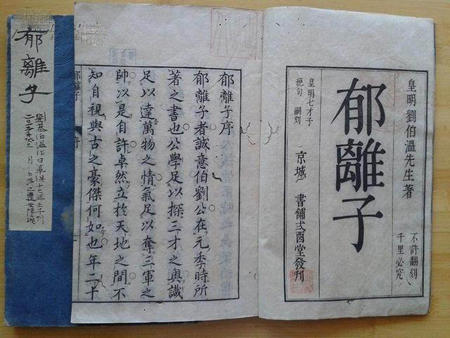 皇明劉伯溫先生著
郁離子
不許翻刻
千里必究
皇明七才子
絕句　嗣刻
京城　書鋪弍酉堂發刋
郁離子序
郁離子者誠意伯劉公在元季時所
著之書也公學足以探三才之奧識
足以達萬物之情氣足以奪三軍之
帥以是自許卓然立於天地之間不
知自視與古之豪傑何如也年二十
郁離子
郁離子